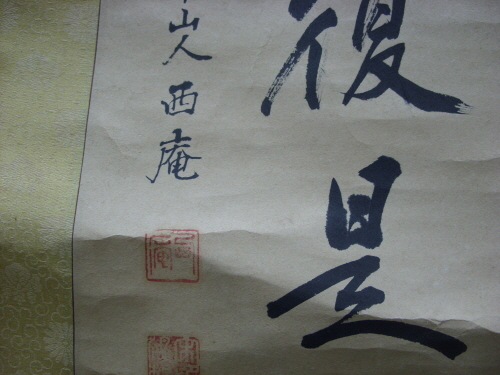 復是
山人西庵
西庵